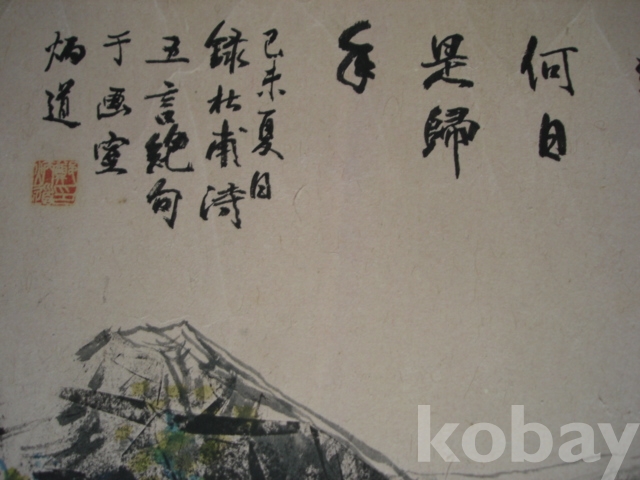 何日
是歸
年
己未夏日
錄杜甫詩
五言絶句
于画室
炳道
kobay